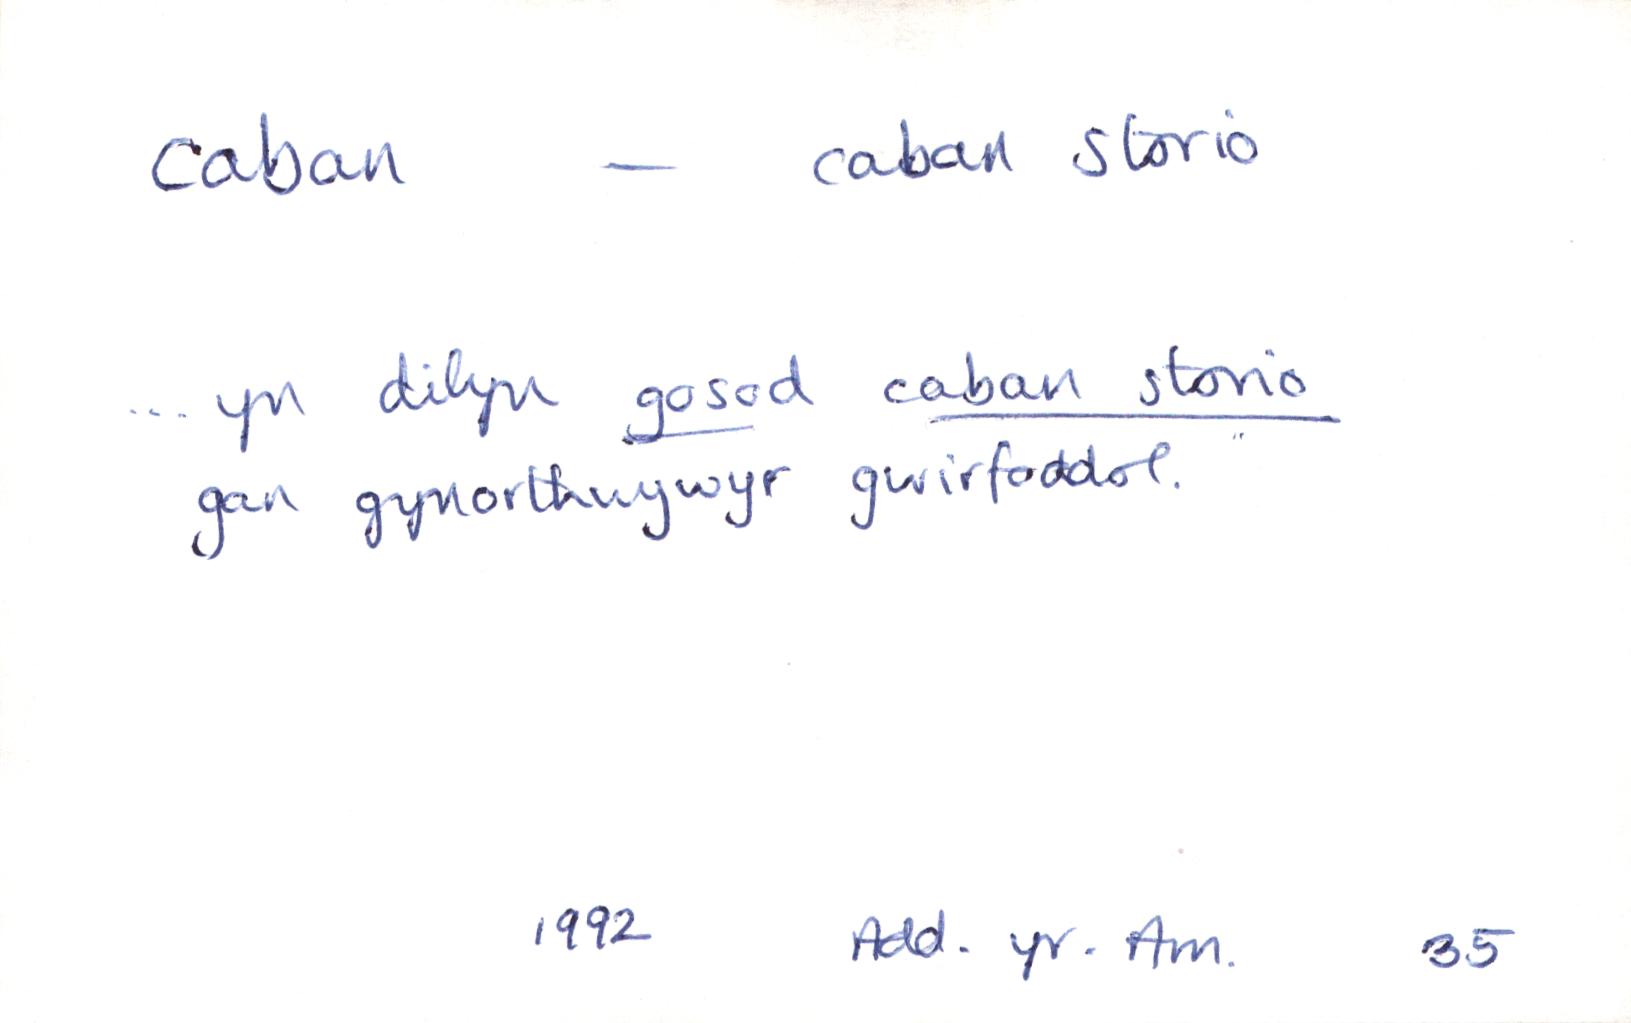 caban — caban storio
... yn dilyn gosod caban storio
gan gynorthwywyr gwirfoddol.
1992 Add. yr. Am. 35